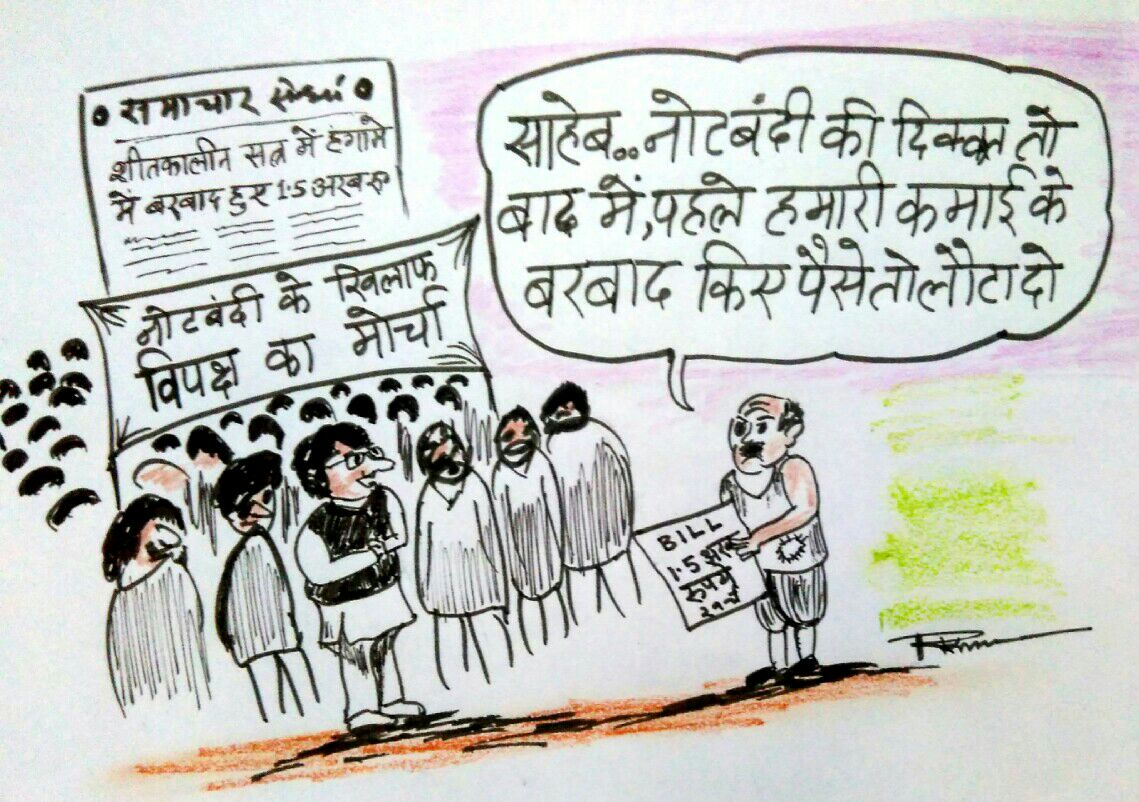 समाचार
शीतकालीन सत्र में हंगामे
में बरबाद हुए 1.5 अरब रू
नोटबंदी के खिलाफ
विपक्ष का मोर्चा
साहेब..नोटबंदी की दिक्कत तो
बाद में,पहले हमारी कमाई के
बरबाद किए पैसे तो लौटा दो
BILL
1.5 अरब
रुपये